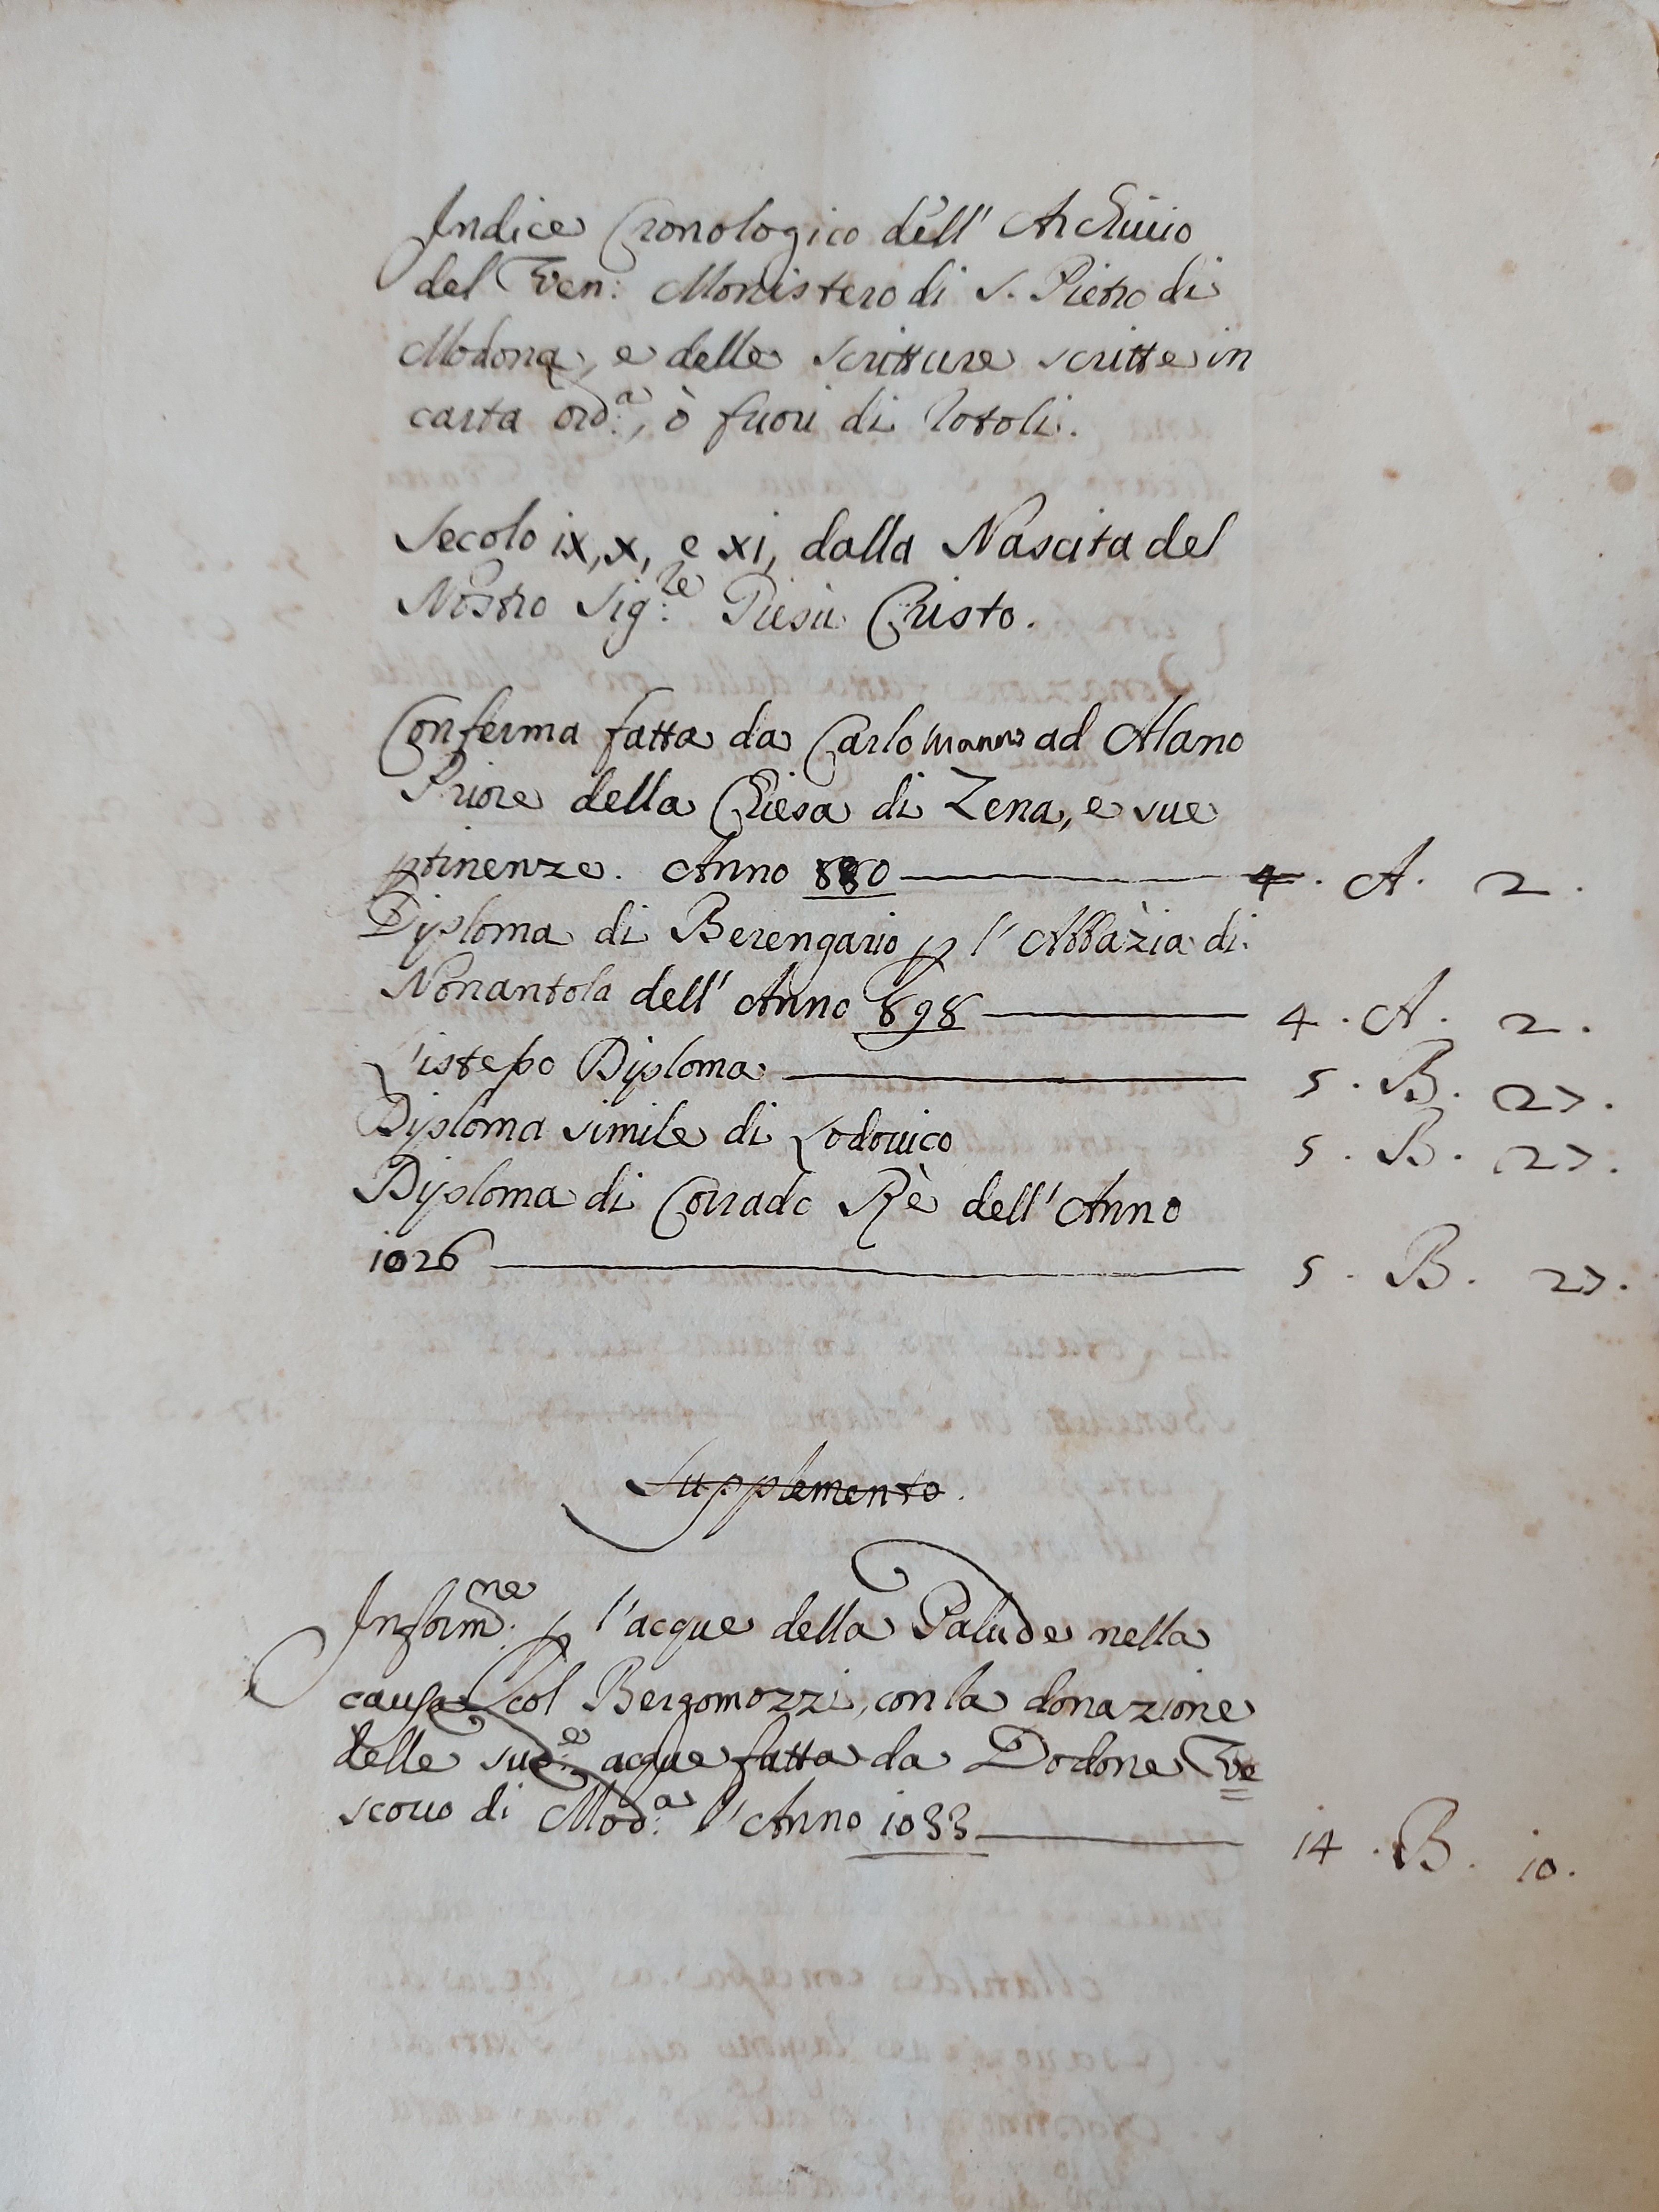 Indice Cronologico dell' Archiuio
del Ven: Monistero di S. Pietro di
Modona, e delle scritture scritte in
carta ord:a, ò fuori di Rotoli.
Secolo ix, x, e xi, dalla Nascita del
Nostro Sig:re Giesù Cristo.
Conferma fatta da Carlomanno ad Alano
Priore della Chiesa di Zena, e sue
ptinenze. Anno 880 — 4. A. 2.
Diploma di Berengario p l' Abbàzia di
Nonantola dell' Anno 898 — 4. A. 2.
L'istesso Diploma — 5. B. 27.
Diploma simile di Lodouico 5. B. 27.
Diploma di Corrado Rè dell' Anno
1026 — 5. B. 27.
Supplemento.
Inform:ne p l'acque della Palude nella
causa col Bergomozzi, con la donazione
delle sud:e acque fatta da Dodone Ve
scouo di Mod:a l'Anno 1033 — 14. B. 10.